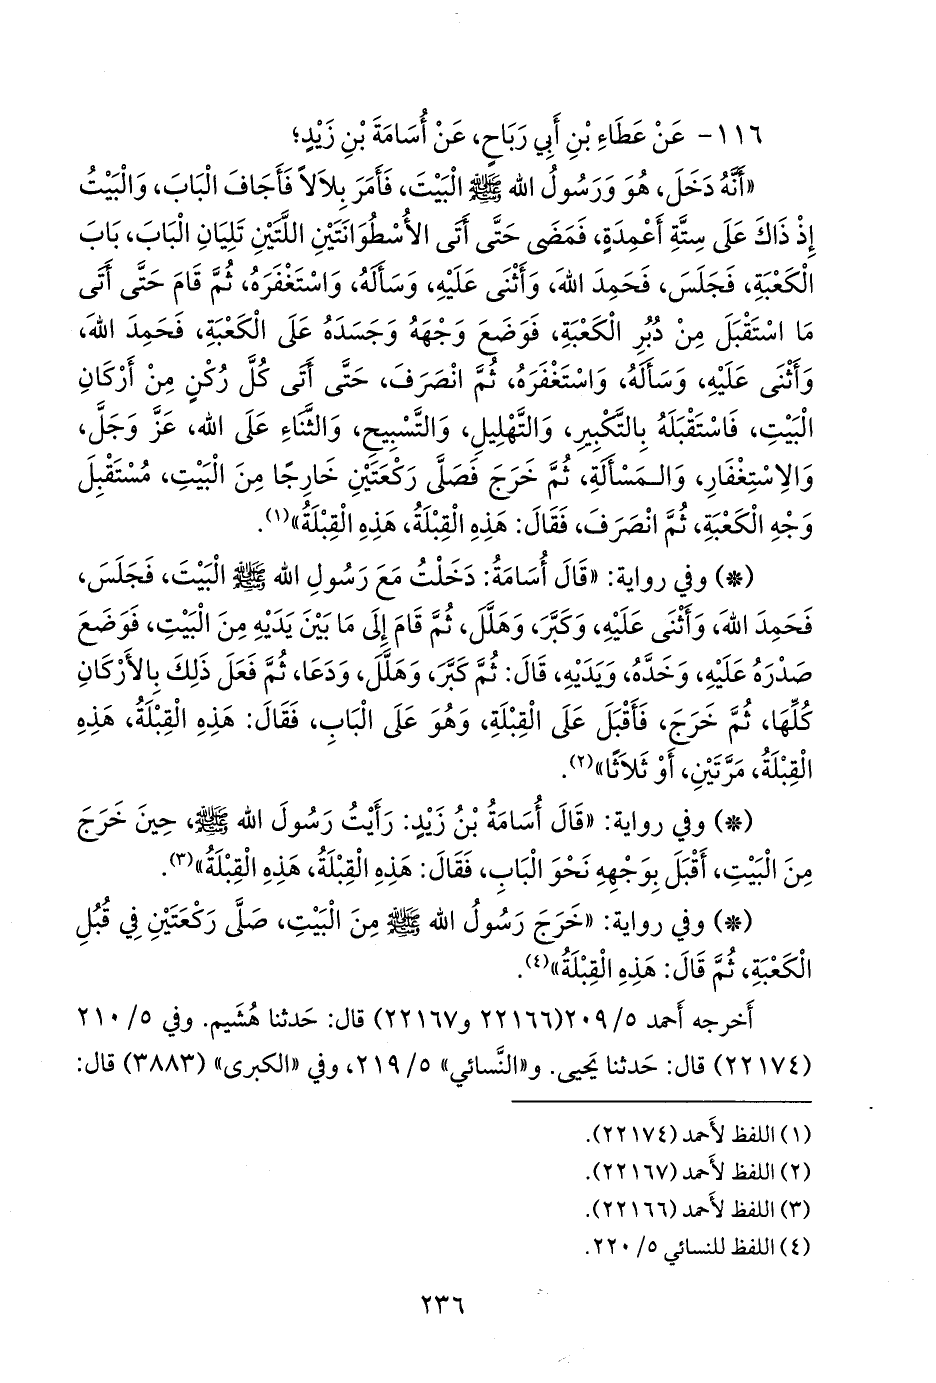 ١١٦- عَنْ عَطَاءِ بْنِ أَبِي رَبَاحٍ، عَنْ أُسَامَةَ بْنِ زَيْدٍ؛
«أَنَّهُ دَخَلَ، هُوَ وَرَسُولُ الله ﷺ الْبَيْتَ، فَأَمَرَ بِلاَلاً فَأَجَافَ الْبَابَ، وَالْبَيْتُ
إِذْ ذَاكَ عَلَى سِتَّةِ أَعْمِدَةٍ، فَمَضَى حَتَّى أَتَى الأُسْطُوَانَتَيْنِ اللَّتَيْنِ تَلِيَانِ الْبَابَ، بَابَ
الْكَعْبَةِ، فَجَلَسَ، فَحَمِدَ اللهَ، وَأَثْنَى عَلَيْهِ، وَسَأَلَهُ، وَاسْتَغْفَرَهُ، ثُمَّ قَامَ حَتَّى أَتَى
مَا اسْتَقْبَلَ مِنْ دُبُرِ الْكَعْبَةِ، فَوَضَعَ وَجْهَهُ وَجَسَدَهُ عَلَى الْكَعْبَةِ، فَحَمِدَ اللهَ،
وَأَثْنَى عَلَيْهِ، وَسَأَلَهُ، وَاسْتَغْفَرَهُ، ثُمَّ انْصَرَفَ، حَتَّى أَتَى كُلَّ رُكْنٍ مِنْ أَرْكَانِ
الْبَيْتِ، فَاسْتَقْبَلَهُ بِالتَّكْبِيرِ، وَالتَّهْلِيلِ، وَالتَّسْبِيحِ، وَالثَّنَاءِ عَلَى الله، عَزَّ وَجَلَّ،
وَالاِسْتِغْفَارِ، وَالـمَسْأَلَةِ، ثُمَّ خَرَجَ فَصَلَّى رَكْعَتَيْنِ خَارِجًا مِنَ الْبَيْتِ، مُسْتَقْبِلَ
وَجْهِ الْكَعْبَةِ، ثُمَّ انْصَرَفَ، فَقَالَ: هَذِهِ الْقِبْلَةُ، هَذِهِ الْقِبْلَةُ»(١).
(*) وفي رواية: «قَالَ أُسَامَةُ: دَخَلْتُ مَعَ رَسُولِ الله ﷺ الْبَيْتَ، فَجَلَسَ،
فَحَمِدَ اللهَ، وَأَثْنَى عَلَيْهِ، وَكَبَّرَ، وَهَلَّلَ، ثُمَّ قَامَ إِلَى مَا بَيْنَ يَدَيْهِ مِنَ الْبَيْتِ، فَوَضَعَ
صَدْرَهُ عَلَيْهِ، وَخَدَّهُ، وَيَدَيْهِ، قَالَ: ثُمَّ كَبَّرَ، وَهَلَّلَ، وَدَعَا، ثُمَّ فَعَلَ ذَلِكَ بِالأَرْكَانِ
كُلِّهَا، ثُمَّ خَرَجَ، فَأَقْبَلَ عَلَى الْقِبْلَةِ، وَهُوَ عَلَى الْبَابِ، فَقَالَ: هَذِهِ الْقِبْلَةُ، هَذِهِ
الْقِبْلَةُ، مَرَّتَيْنِ، أَوْ ثَلاَثًا»(٢).
(*) وفي رواية: «قَالَ أُسَامَةُ بْنُ زَيْدٍ: رَأَيْتُ رَسُولَ الله ﷺ، حِينَ خَرَجَ
مِنَ الْبَيْتِ، أَقْبَلَ بِوَجْهِهِ نَحْوَ الْبَابِ، فَقَالَ: هَذِهِ الْقِبْلَةُ، هَذِهِ الْقِبْلَةُ»(٣).
(*) وفي رواية: «خَرَجَ رَسُولُ الله ﷺ مِنَ الْبَيْتِ، صَلَّى رَكْعَتَيْنِ فِي قُبُلِ
الْكَعْبَةِ، ثُمَّ قَالَ: هَذِهِ الْقِبْلَةُ»(٤).
أَخرجه أَحمد ٥/ ٢٠٩(٢٢١٦٦ و٢٢١٦٧) قال: حَدثنا هُشَيم. وفي ٥/ ٢١٠
(٢٢١٧٤) قال: حَدثنا يَحيى. و«النَّسائي» ٥/ ٢١٩، وفي «الكبرى» (٣٨٨٣) قال:
(١) اللفظ لأَحمد (٢٢١٧٤).
(٢) اللفظ لأَحمد (٢٢١٦٧).
(٣) اللفظ لأَحمد (٢٢١٦٦).
(٤) اللفظ للنسائي ٥/ ٢٢٠.
٢٣٦